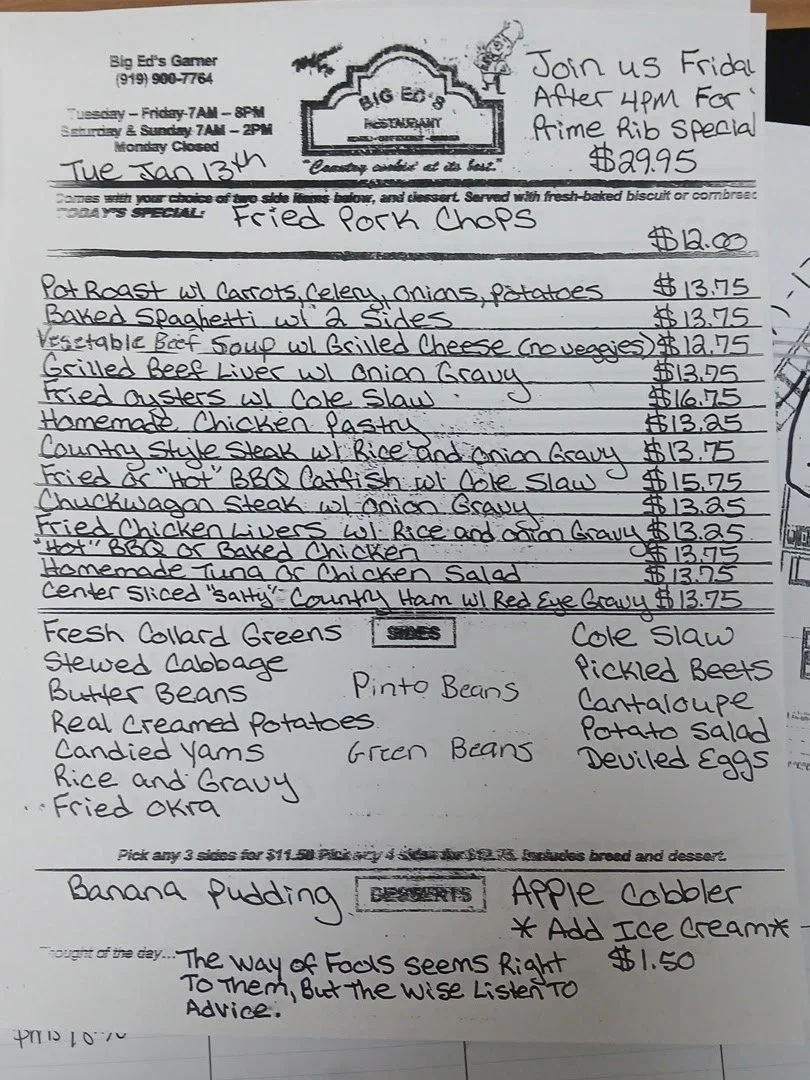 Big Ed's Garner
(919) 900-7764
Tuesday – Friday 7AM – 8PM
Saturday & Sunday 7AM – 2PM
Monday Closed
Tue Jan 13th
BIG ED'S
RESTAURANT
"Country cookin' at its best."
Join us Friday
After 4PM For
Prime Rib Special
$29.95
Comes with your choice of two side items below, and dessert. Served with fresh-baked biscuit or cornbread
TODAY'S SPECIAL: Fried Pork Chops
$12.00
Pot Roast w/ Carrots, Celery, Onions, Potatoes $13.75
Baked Spaghetti w/ 2 Sides $13.75
Vegetable Beef Soup w/ Grilled Cheese (no veggies) $12.75
Grilled Beef Liver w/ Onion Gravy $13.75
Fried Oysters w/ Cole Slaw $16.75
Homemade Chicken Pastry $13.25
Country Style Steak w/ Rice and Onion Gravy $13.75
Fried or "Hot" BBQ Catfish w/ Cole Slaw $15.75
Chuckwagon Steak w/ Onion Gravy $13.25
Fried Chicken Livers w/ Rice and Onion Gravy $13.25
"Hot" BBQ or Baked Chicken $13.75
Homemade Tuna or Chicken Salad $13.75
Center Sliced "Salty" Country Ham w/ Red Eye Gravy $13.75
SIDES
Fresh Collard Greens
Stewed Cabbage
Butter Beans
Real Creamed Potatoes
Candied Yams
Rice and Gravy
Fried Okra
Pinto Beans
Green Beans
Cole Slaw
Pickled Beets
Cantaloupe
Potato Salad
Deviled Eggs
Pick any 3 sides for $11.50 Pick any 4 sides for $12.75. Includes bread and dessert.
Banana Pudding DESSERTS Apple Cobbler
* Add Ice Cream *
$1.50
Thought of the day... The Way of Fools Seems Right
To Them, But The Wise Listen To
Advice.